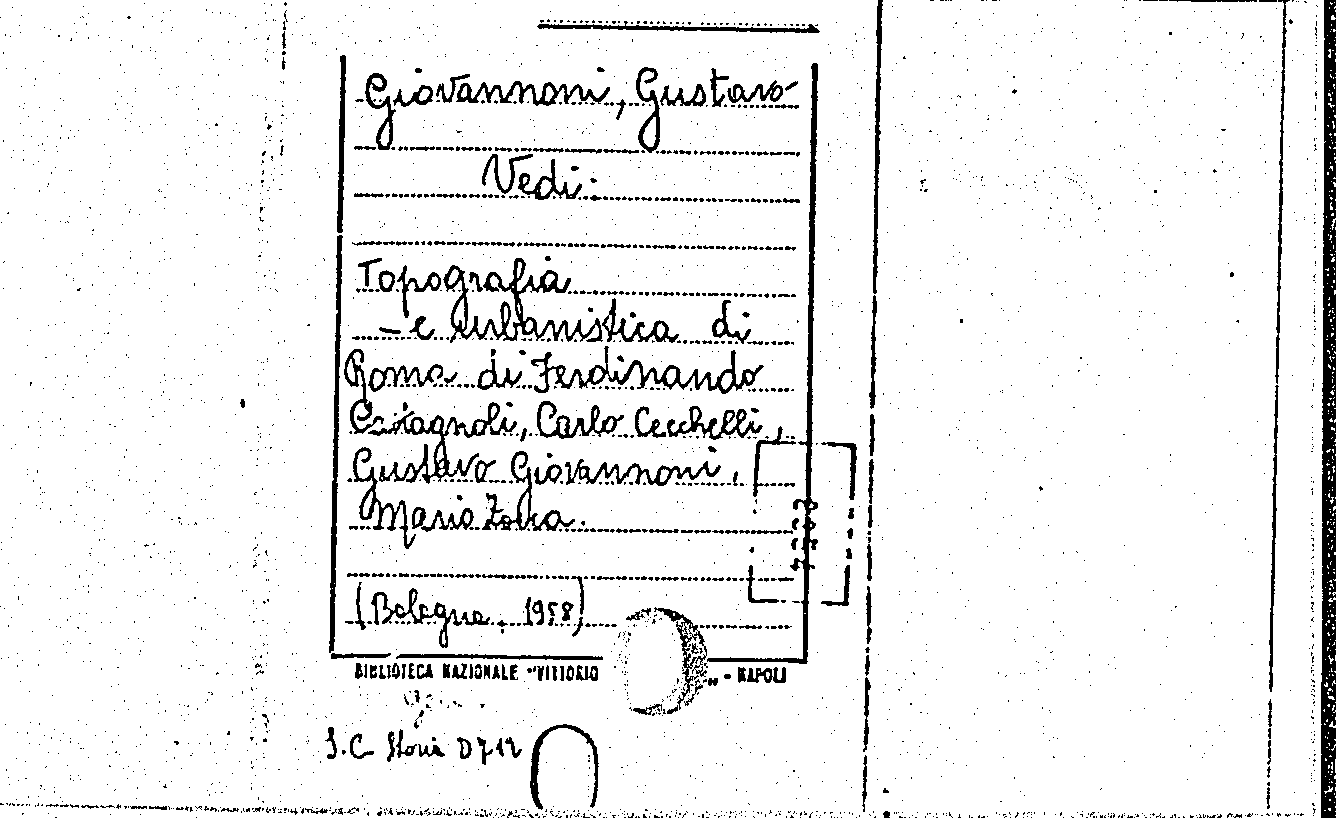 Giovannoni, Gustavo
Vedi:
Topografia
– e urbanistica di
Roma di Ferdinando
Castagnoli, Carlo Cecchelli,
Gustavo Giovannoni,
Mario Zocca.
(Bologna, 1958)
BIBLIOTECA NAZIONALE "VITTORIO „ - NAPOLI
S.C. Storia D 712